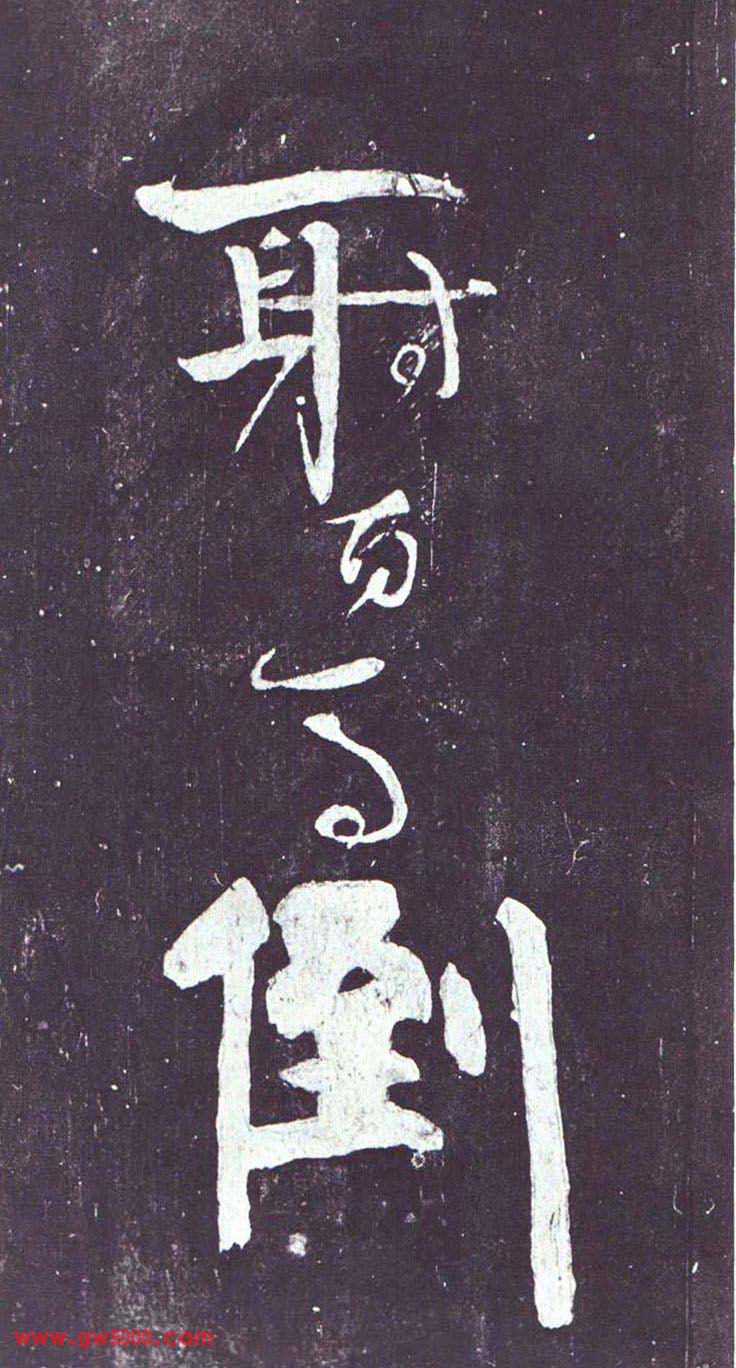 一射百馬倒
www.gw5000.com